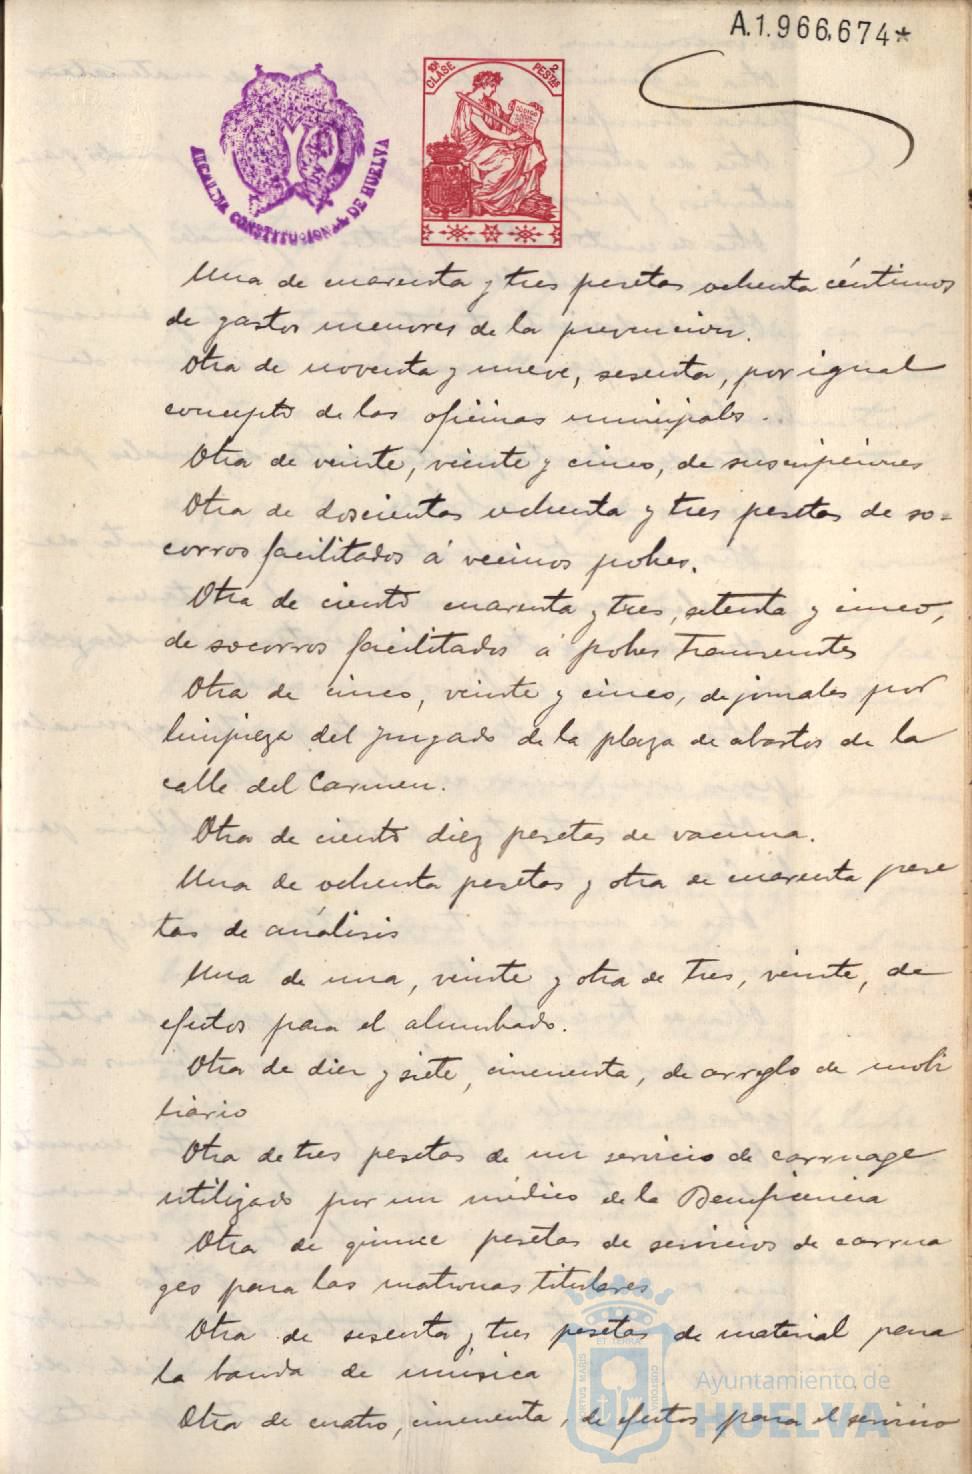 A.1.966,674*
ALCALDIA CONSTITUCIONAL DE HUELVA
10ª CLASE
2 PESTAS
Una de cuarenta y tres pesetas ochenta céntimos
de gastos menores de la prevencion.
Otra de noventa y nueve, sesenta, por igual
concepto de las oficinas municipales.
Otra de veinte, veinte y cinco, de suscripciones
Otra de doscientas ochenta y tres pesetas de so=
corros facilitados á vecinos pobres.
Otra de ciento cuarenta y tres, setenta y cinco,
de socorros facilitados á pobres transeuntes
Otra de cinco, veinte y cinco, de jornales por
limpieza del juzgado de la plaza de abastos de la
calle del Carmen.
Otra de ciento diez pesetas de vacuna.
Una de ochenta pesetas y otra de cuarenta pese
tas de análisis
Una de una, veinte y otra de tres, veinte, de
efectos para el alumbrado.
Otra de diez y siete, cincuenta, de arreglo de mobi
liario
Otra de tres pesetas de un servicio de carruage
utilizado por un médico de la Beneficencia
Otra de quince pesetas de servicios de carrua
ges para las matronas titulares
Otra de sesenta y tres pesetas de material para
la banda de musica
Otra de cuatro, cincuenta, de efectos para el servicio
Ayuntamiento de
HUELVA